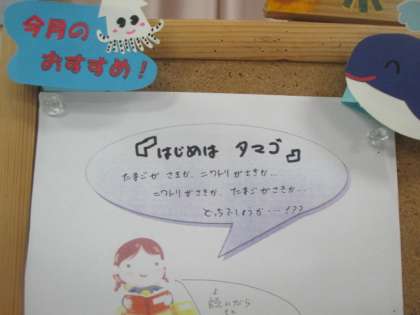 今月の
おすすめ!
『はじめは タマゴ』
たまごが さきか、ニワトリがさきか…
ニワトリがさきか、たまごがさきか…
どっちでしょうか…???
読んだら